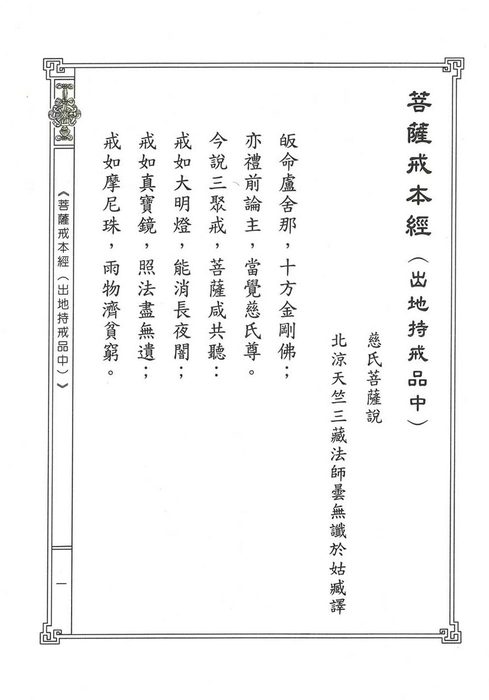 菩薩戒本經（出地持戒品中）
慈氏菩薩說
北涼天竺三藏法師曇無讖於姑臧譯
皈命盧舍那，十方金剛佛；
亦禮前論主，當覺慈氏尊。
今說三聚戒，菩薩咸共聽：
戒如大明燈，能消長夜闇；
戒如真寶鏡，照法盡無遺；
戒如摩尼珠，雨物濟貧窮。
《菩薩戒本經（出地持戒品中）》
一